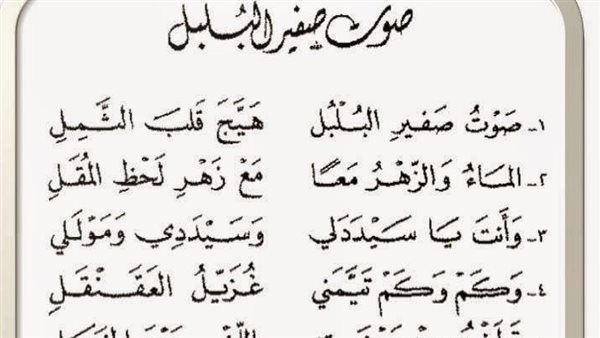 صوت صفير البلبل
١- صَوْتُ صَفِيرِ البُلْبُلِ هَيَّجَ قَلبَ الثَّمِلِ
٢- المَاءُ وَالزَّهْرُ مَعًا مَعْ زَهْرِ لَحْظِ المُقَلِ
٣- وَأَنتَ يَا سَيْدَدَلِي وَسَيْدَدِي وَمَوْلَلِي
٤- وَكَمْ وَكَمْ تَيَّمَنِي غُزَيِّلُ العَقَنْقَلِ